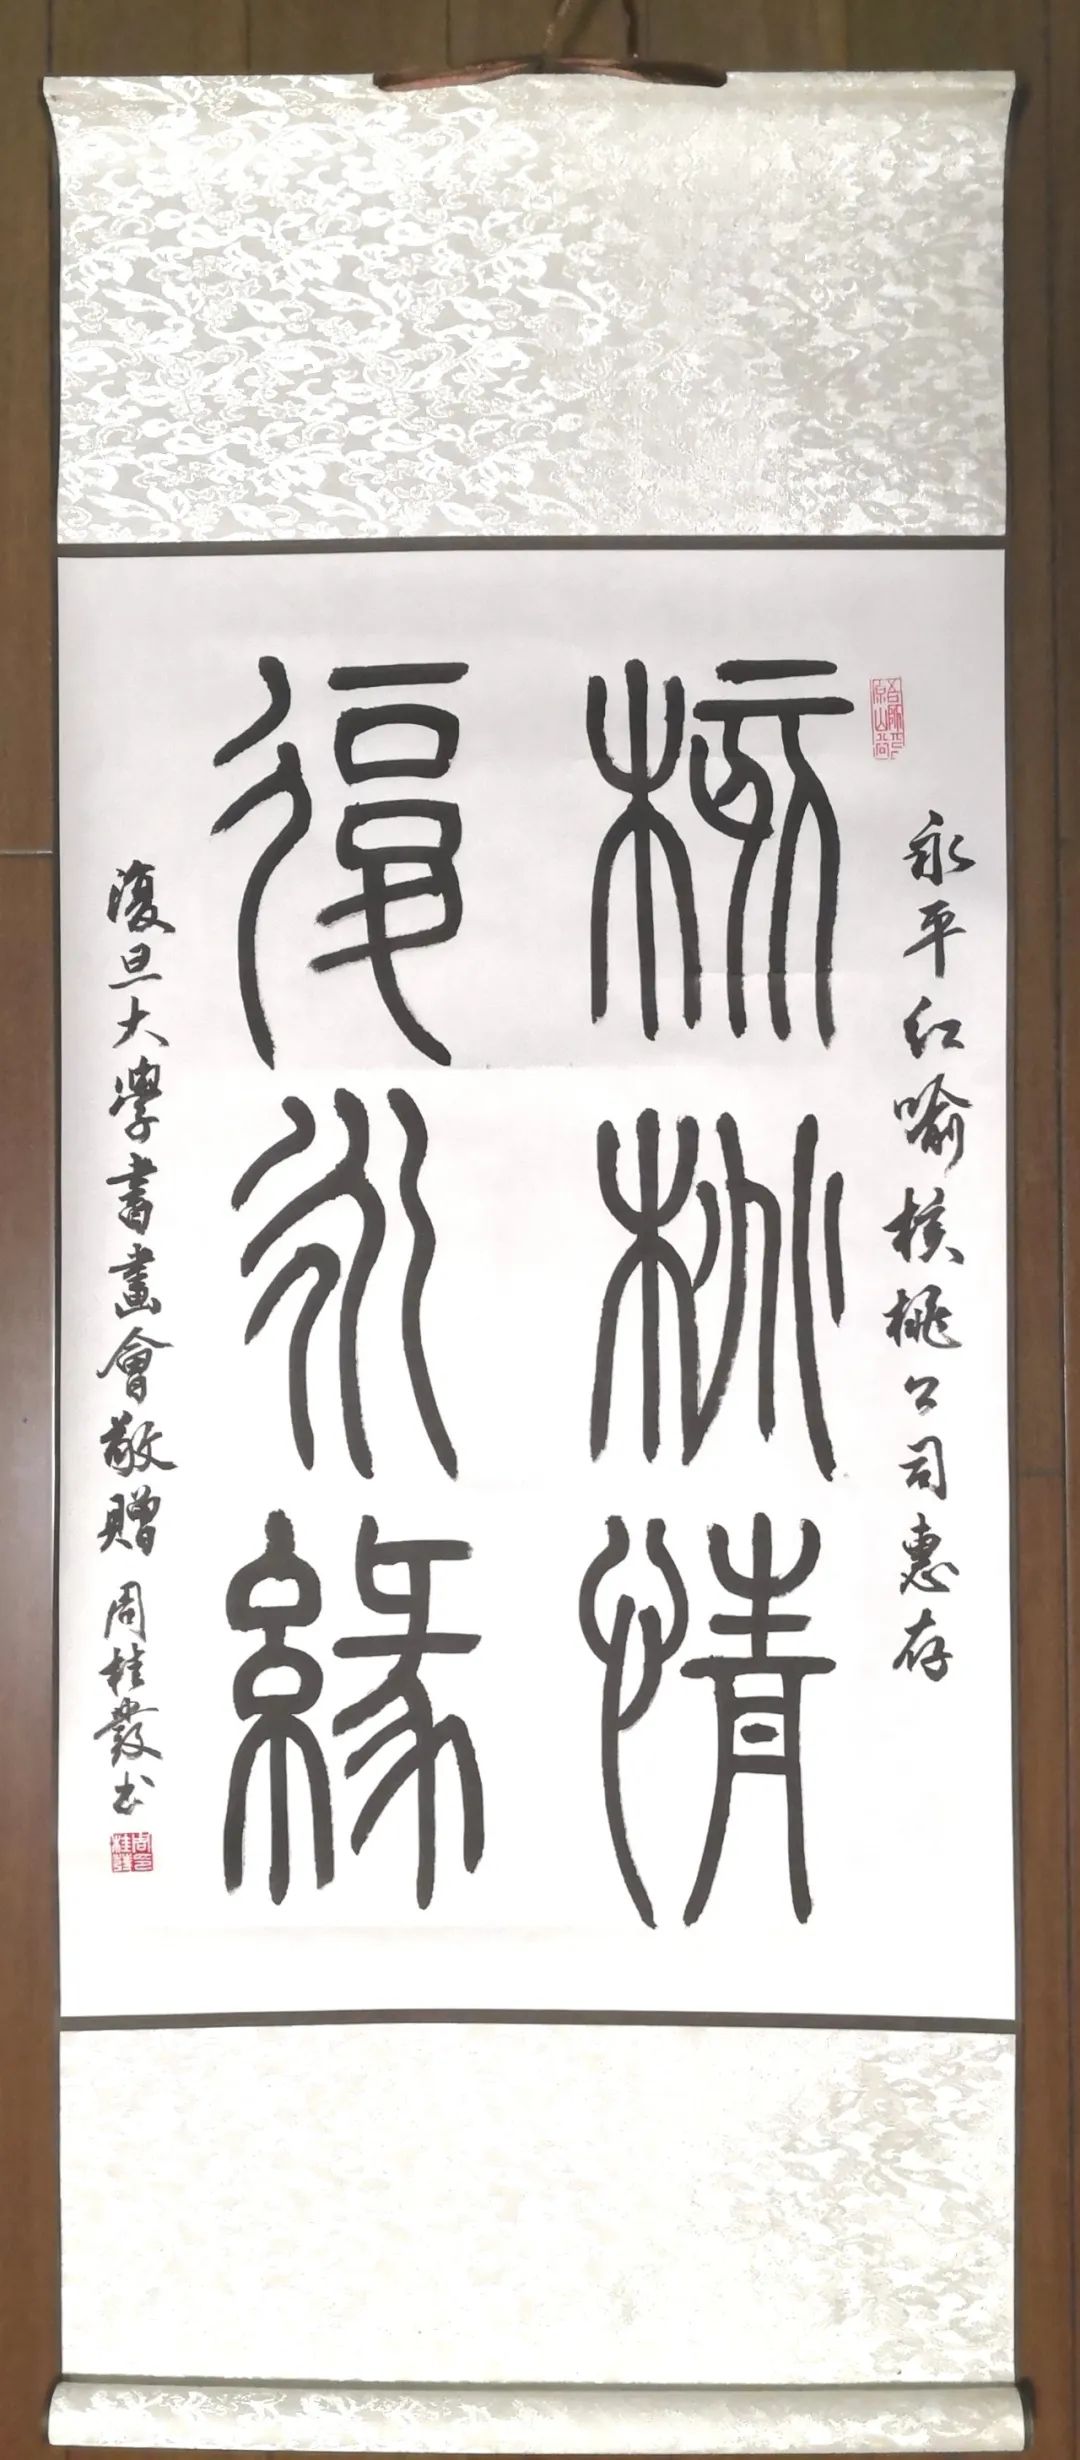 永平红喻核桃公司惠存
核桃情
復永緣
復旦大學書畫會敬贈 周桂發書